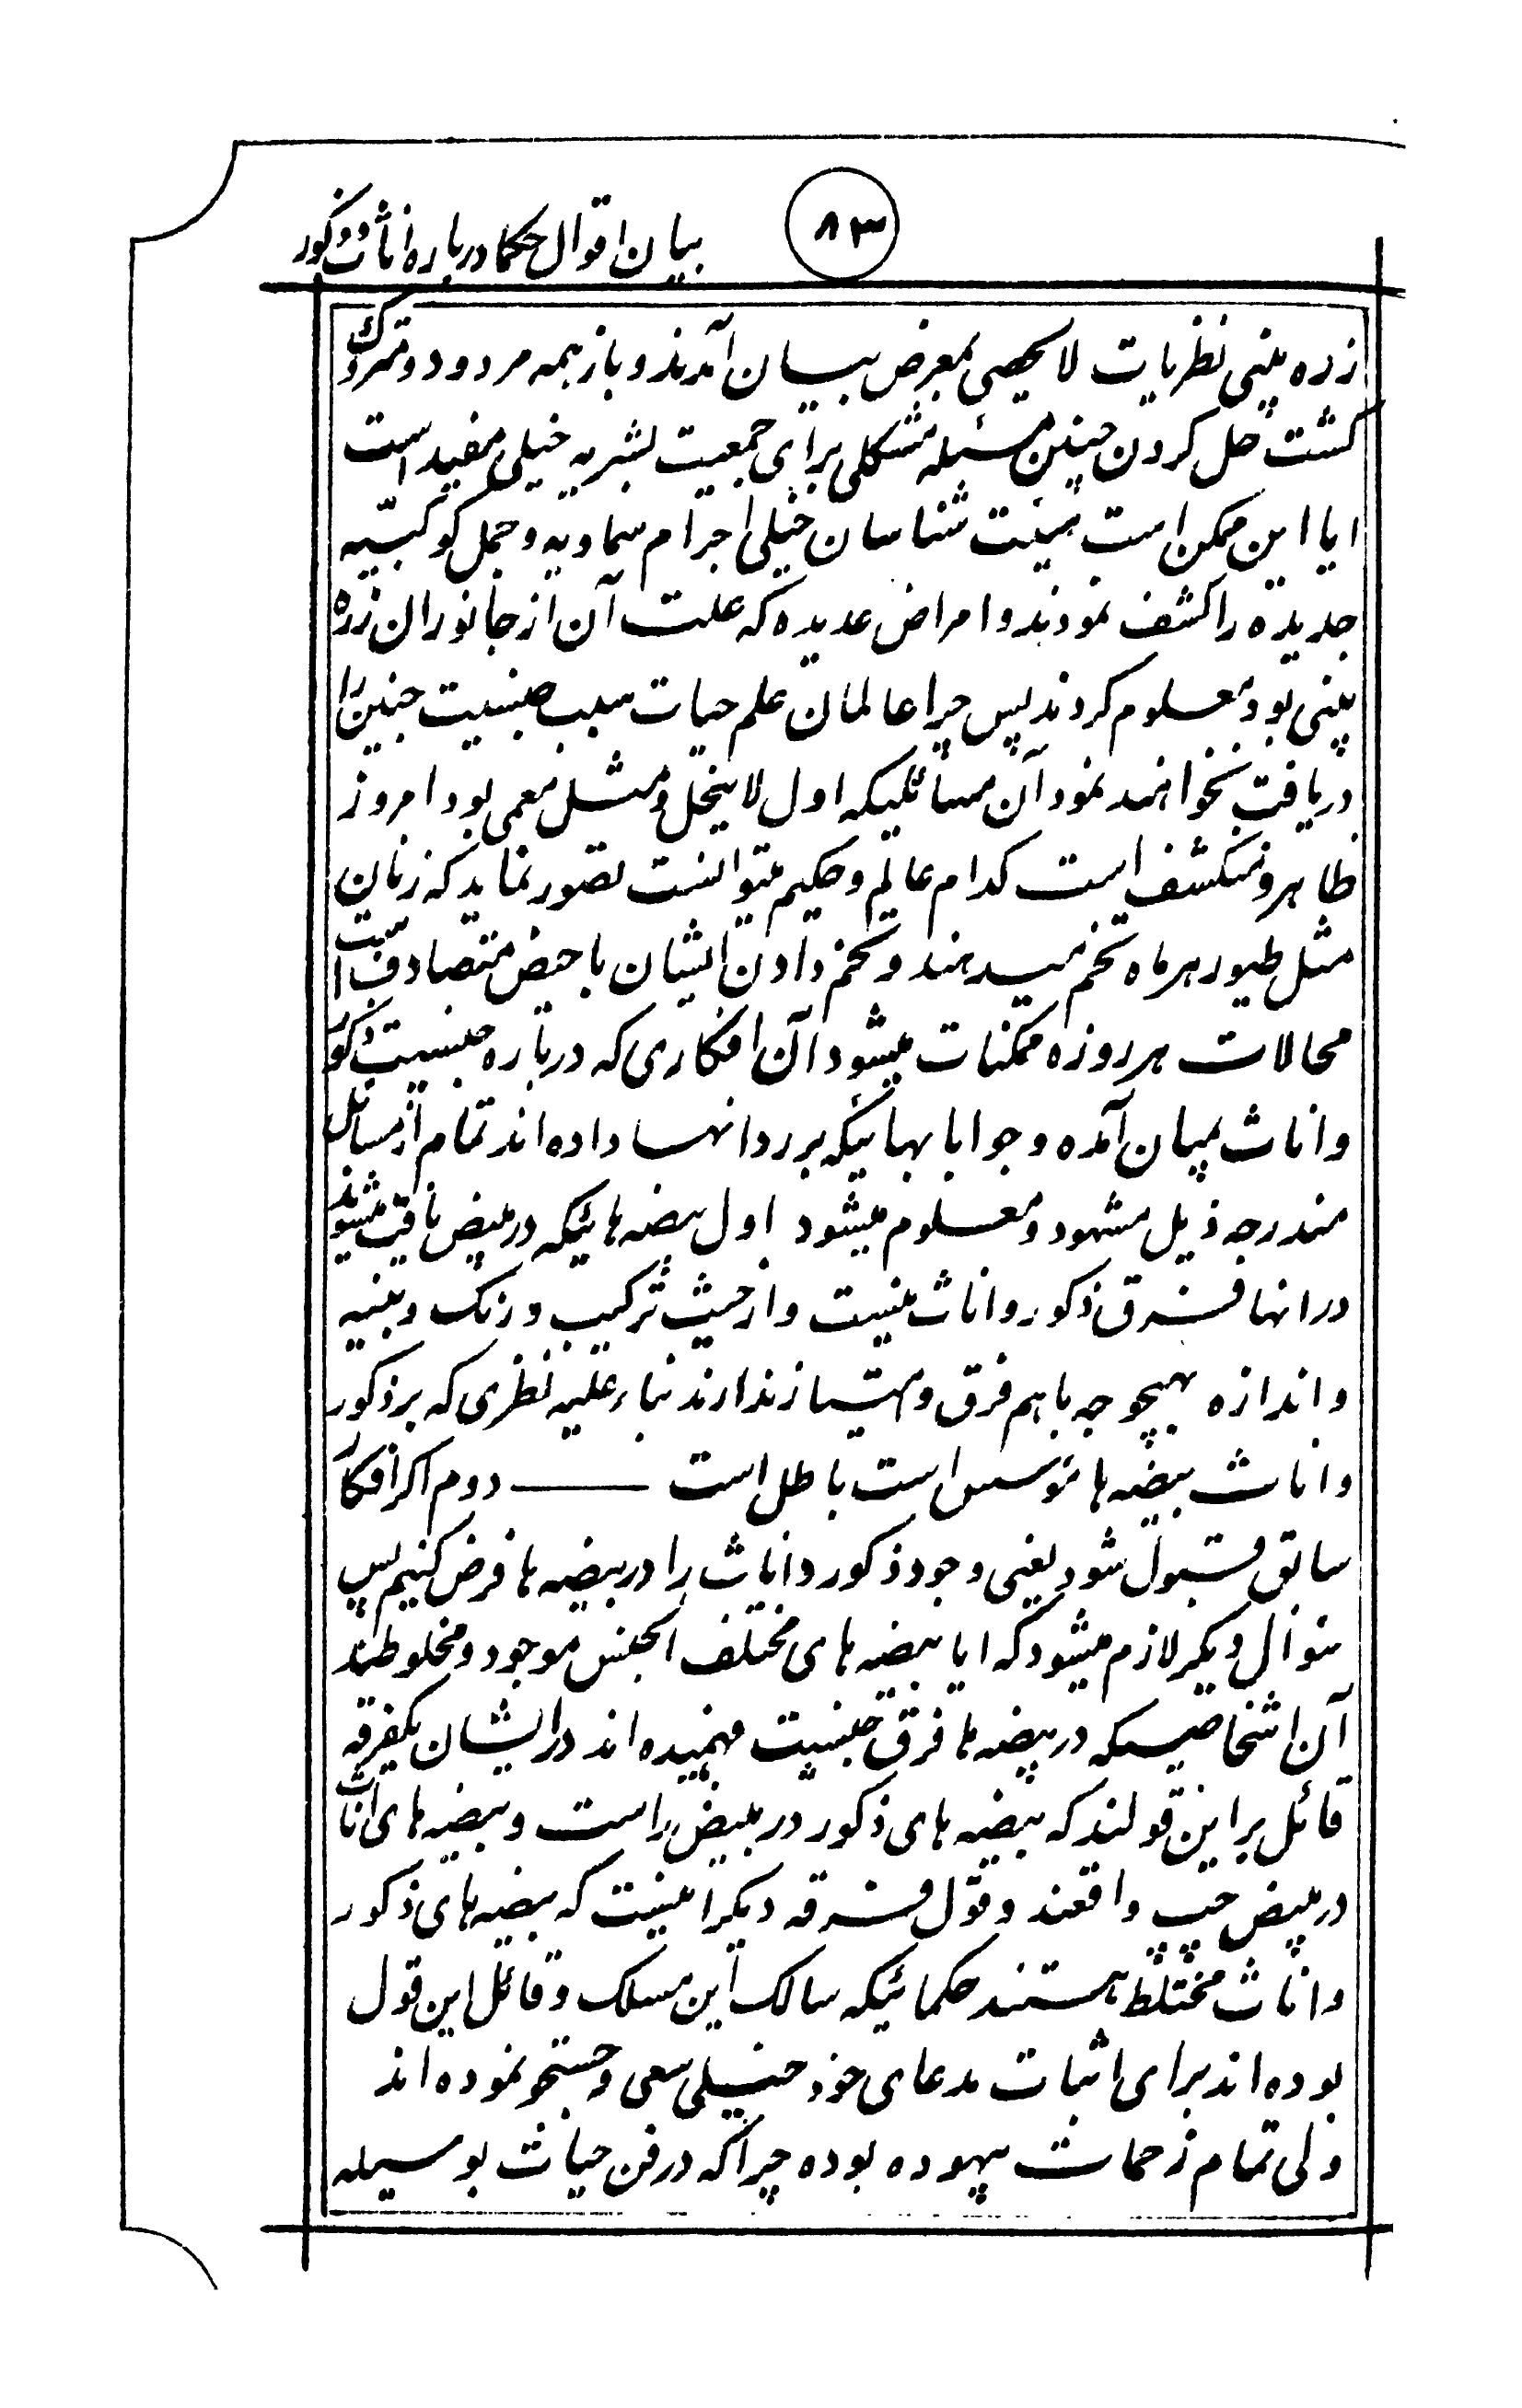 ۸۳
بیان اقوال حکما درباره اناث و ذکور
زره بینی نظریات لایحصی بمعرض بیان آمدند و باز همه مردود و متروک
گشت حل کردن چنین مسئله مشکلی برای جمعیت بشریه خیلی مفید است
ایا این ممکن است هیئت شناسان خیلی اجرام سماویه و جمل کوکبیّه
جدیده را کشف نمودند و امراض عدیده که علت آن از جانوران زره
بینی بود معلوم کردند پس چرا عالمان علم حیات سبب جنسیت جنین را
دریافت نخواهند نمود آن مسائلیکه اول لاینحل و مثل معمی بود امروز
ظاهر و منکشف است کدام عالم و حکیم میتوانست تصور نماید که زنان
مثل طیور هر ماه تخم میدهند و تخم دادن ایشان با حیض متصادف است
محالات هر روزه ممکنات میشود آن افکاری که درباره جنسیت ذکور
و اناث بمیان آمده و جوابا بهائیکه بر رد انها داده اند تمام از مسائل
مندرجه ذیل مشهود و معلوم میشود اول بیضه هائیکه در مبیض یافت میشوند
در انها فرق ذکور و اناث نیست و از حیث ترکیب و رنگ و بنیه
و اندازه بهیچوجه باهم فرق و امتیاز ندارند بناء علیه نظری که بر ذکور
و اناث بیضه ها مؤسس است باطل است ــــــ دوم اکر افکار
سابق قبول شود یعنی وجود ذکور و اناث را در بیضه ها فرض کنیم پس
سئوال دیکر لازم میشود که ایا بیضه های مختلف الجنس موجود و مخلوطند
آن اشخاصیکه در بیضه ها فرق جنسیت فهمیده اند در ایشان یکفرقه
قائل بر این قولند که بیضه های ذکور در مبیض راست و بیضه های اناث
در مبیض چپ واقعند و قول فرقه دیکر اینست که بیضه های ذکور
و اناث مختلط هستند حکمائیکه سالک این مسلک و قائل این قول
بوده اند برای اثبات مدعای خود خیلی سعی و جستجو نموده اند
ولی تمام زحمات بیهوده بوده چرا که در فن حیات بوسیله